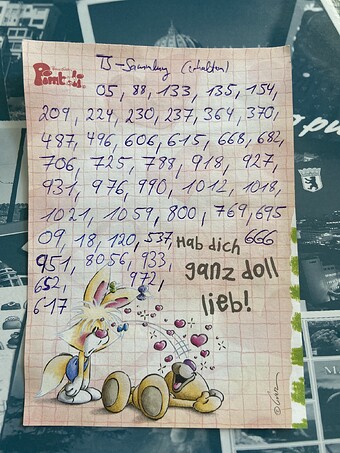 TS-Sammlung (erhalten)
05, 88, 133, 135, 154,
209, 224, 230, 237, 364, 370,
487, 496, 606, 615, 668, 682,
706, 725, 788, 918, 927,
931, 976, 990, 1012, 1018,
1021, 1059, 800, 769, 695
09, 18, 120, 537, 666
951, 8056, 933,
652, 972,
617
Hab dich
ganz doll
lieb!